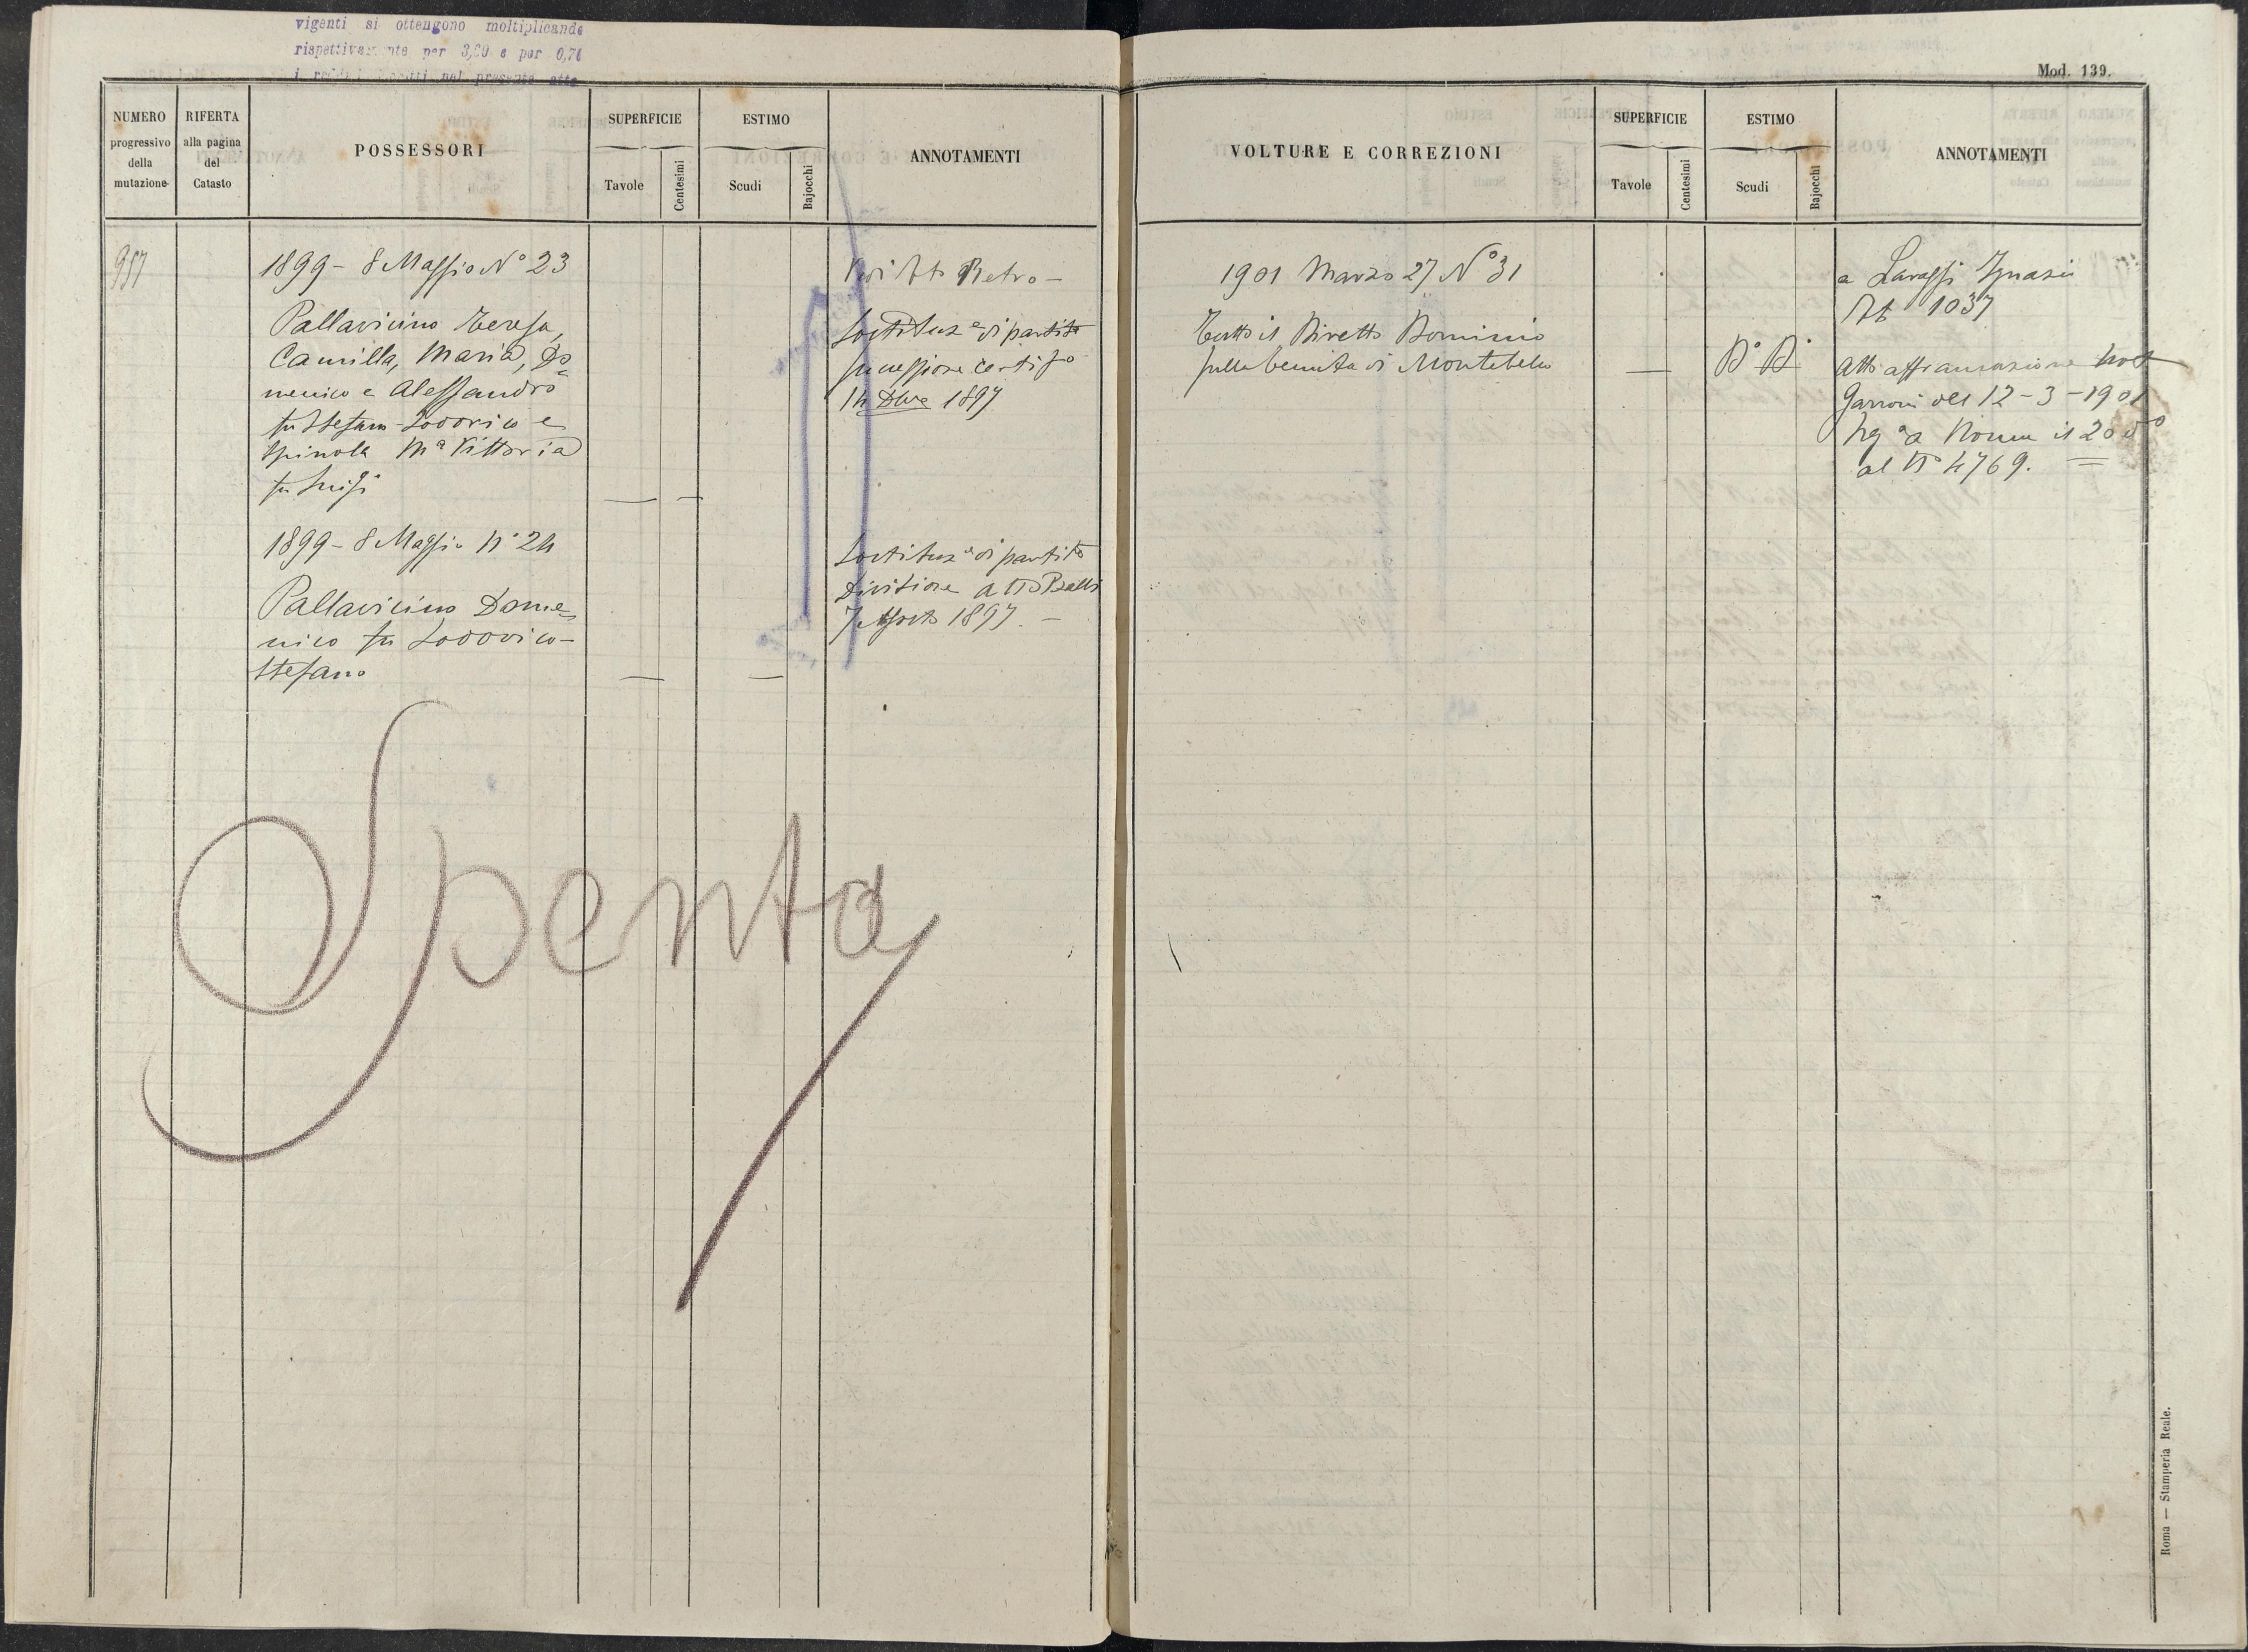 vigenti si ottengono moltiplicando
rispettivamente per 3,90 e per 0,74
nel presente atto
Mod. 139.
NUMERO
progressivo
della
mutazione
RIFERTA
alla pagina
del
Catasto
POSSESSORI
SUPERFICIE
Tavole
Centesimi
ESTIMO
Scudi
Bajocchi
ANNOTAMENTI
957
1899 - 8 Maggio N° 23
Pallavicino Teresa,
Camilla, Maria, Do=
menico e Alessandro
fu Stefano Lodovico e
Spinola Mª Vittoria
fu Luigi
Retro -
di partita
successione
14 1897
1899 - 8 Maggio N° 24
Pallavicino Dome=
nico fu Lodovico -
Stefano
di partita
Divisione atto Balli
7 Agosto 1897. -
Spenta
VOLTURE E CORREZIONI
SUPERFICIE
Tavole
Centesimi
ESTIMO
Scudi
Bajocchi
ANNOTAMENTI
1901 Marzo 27 N° 31
Tutto il Diretto Dominio
sulla tenuta di Montebello
— D° D°
a Lavaggi Ignazio
1037
Atto affrancazione Not
Garroni del 12-3-1901
a Roma il 20 do
al N° 4769. =
Roma — Stamperia Reale.